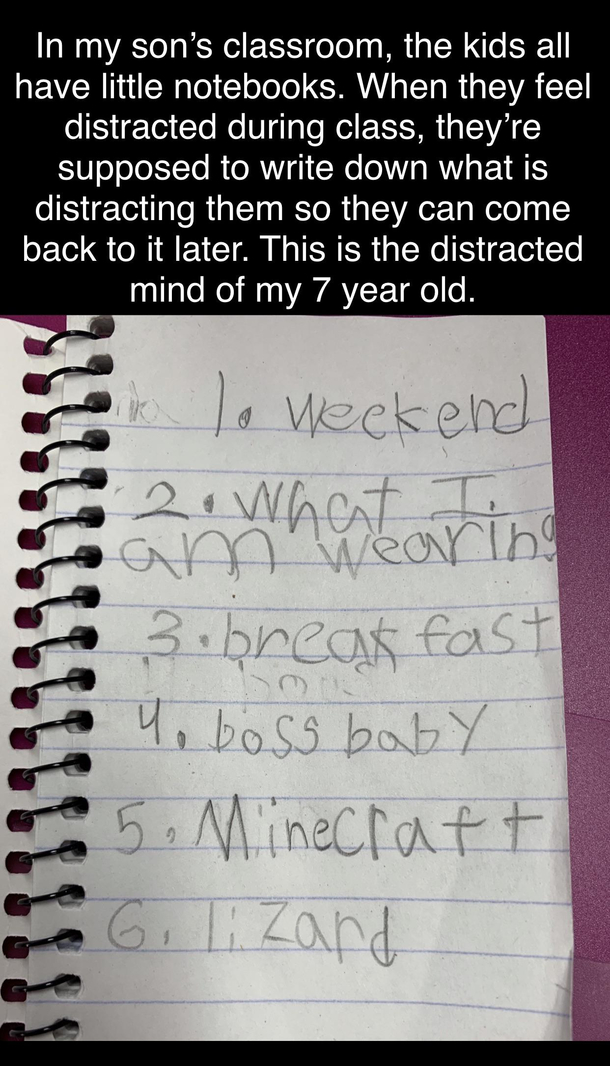 In my son’s classroom, the kids all
have little notebooks. When they feel
distracted during class, they’re
supposed to write down what is
distracting them so they can come
back to it later. This is the distracted
mind of my 7 year old.
1. weekend
2. What I
am wearing
3. breakfast
4. boss baby
5. Minecraft
6. lizard